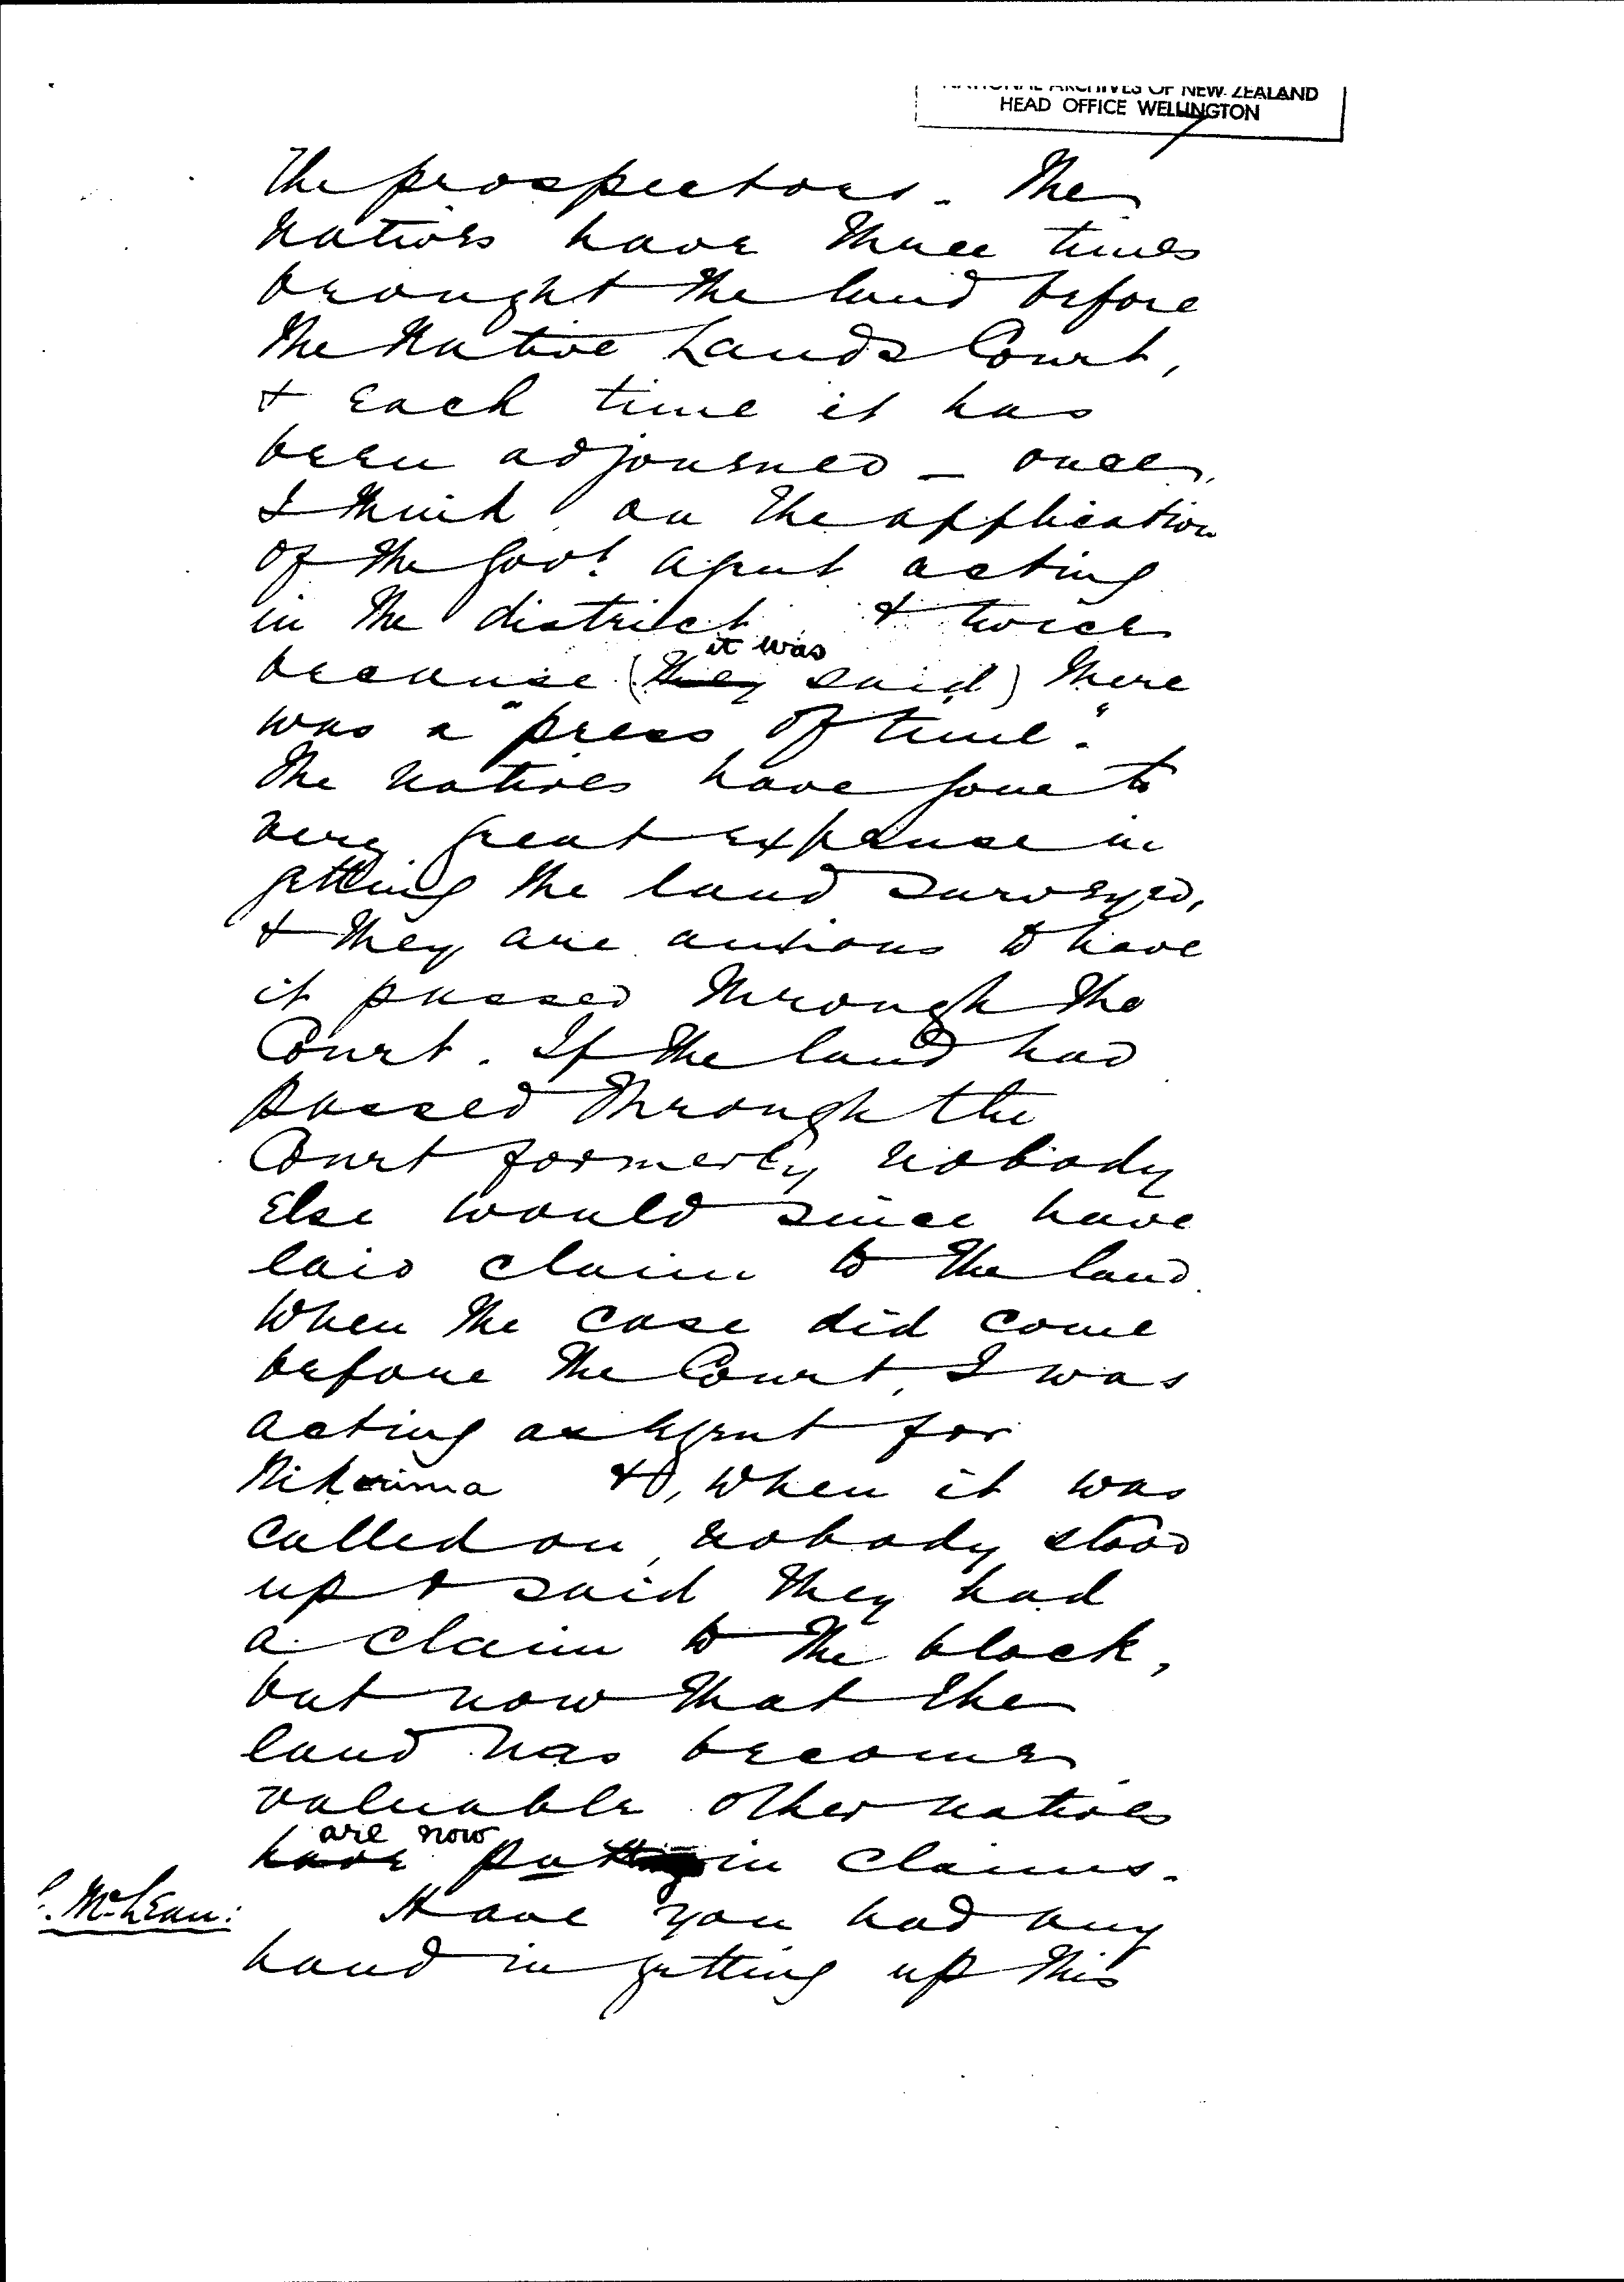 NATIONAL ARCHIVES OF NEW ZEALAND
HEAD OFFICE WELLINGTON
7
the prospectors. The
natives have three times
brought the land before
the Native Lands Court,
& each time it has
been adjourned – once,
I think, on the application
of the Govt. agent acting
in the district, & twice
it was
because (they said) there
was a "press of time".
The natives have gone to
very great expense in
getting the land surveyed,
& they are anxious to have
it passed through the
Court. If the land had
passed through the
Court formerly nobody
else would since have
laid claim to the land.
When the case did come
before the Court, I was
acting as Agent for
&, when it was
called on, nobody stood
up & said they had
a claim to the block,
but now that the
land has become
valuable other natives
are now
have putting in claims.
McLean: Have you had any
hand in getting up this